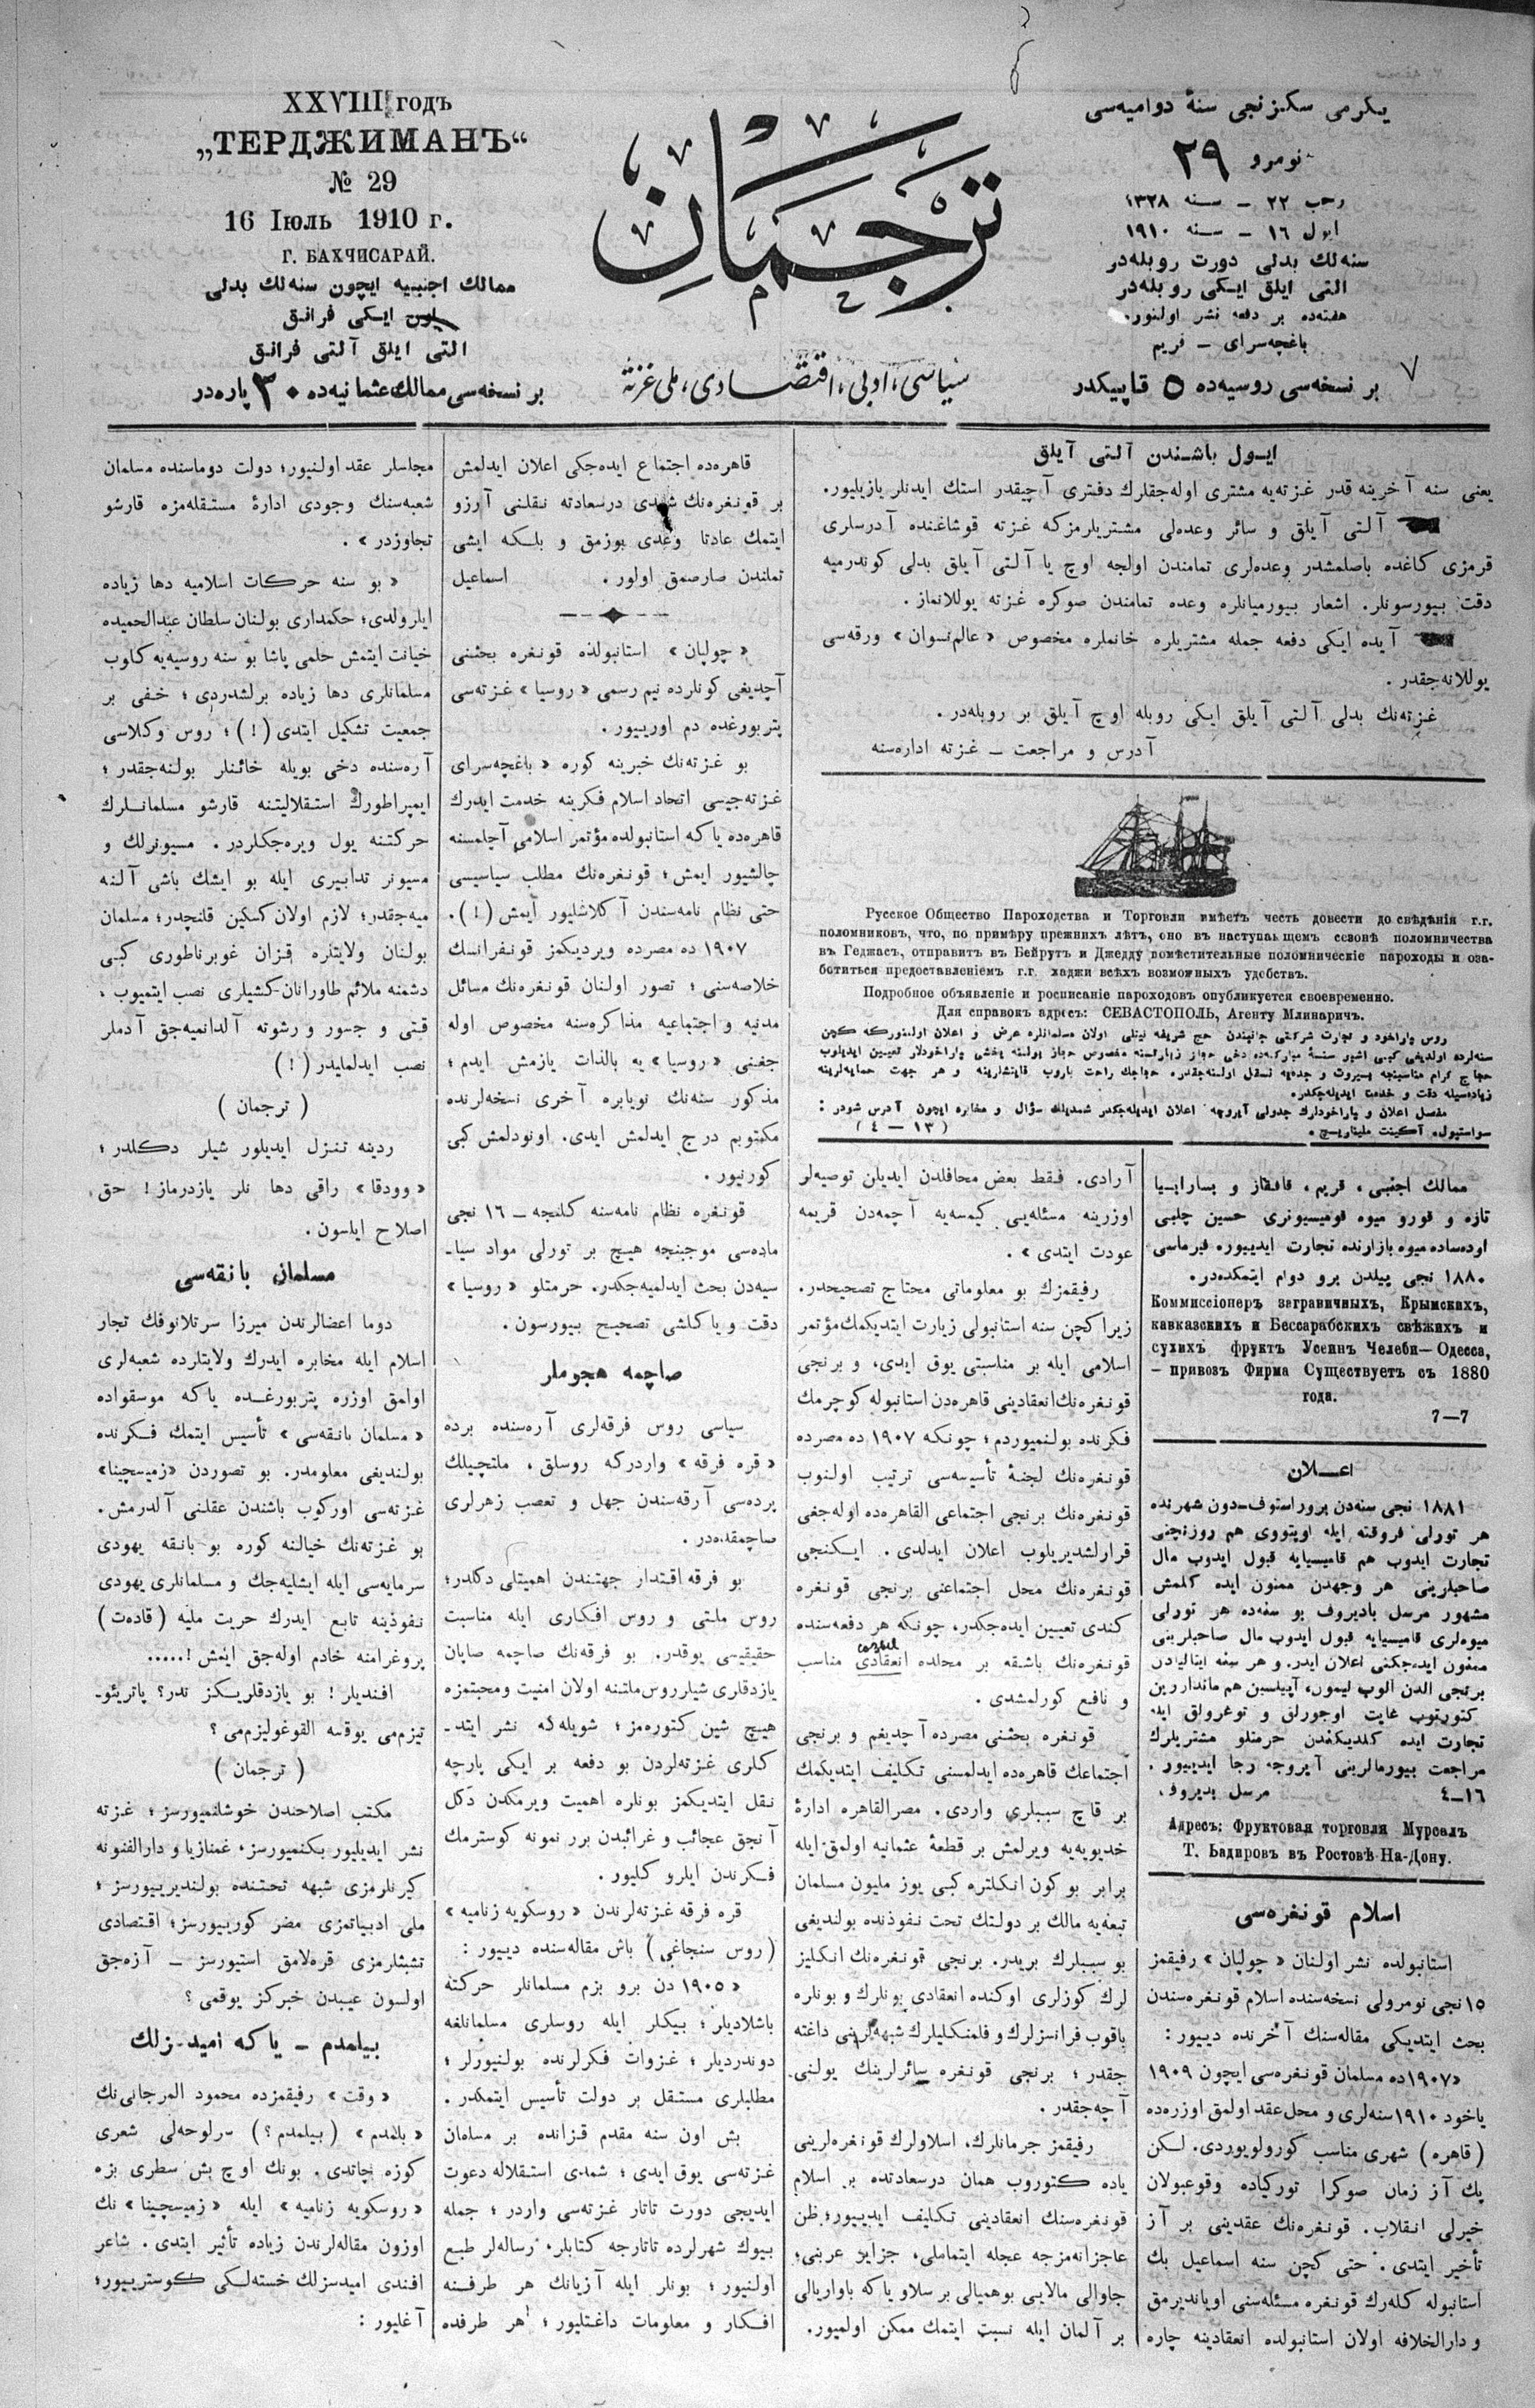 XXVIII годъ
„ТЕРДЖИМАНЪ“
№ 29
16 Іюль 1910 г.
Г. БАХЧИСАРАЙ.
ممالك اجنبيه ايچون سنه‌لك بدلى
ايكى فرانق
التى ايلق آلتى فرانق
بر نسخه‌سى ممالك عثمانيه‌ده ٣٠ پاره‌در
ترجمان
سياسى، ادبى، اقتصادى، ملى غزته
يكرمى سكزنجى سنهٔ دواميه‌سى
نومرو ٢٩
رجب ٢٢ – سنه ١٣٢٨
ايول ١٦ – سنه ١٩١٠
سنه‌لك بدلى دورت روبله‌در
التى ايلق ايكى روبله‌در
هفته‌ده بر دفعه نشر اولنور.
باغچه‌سراى – قريم
بر نسخه‌سى روسيه‌ده ٥ قاپيكدر
٧
ايول باشندن آلتى آيلق
يعنى سنه آخرينه قدر غزته‌يه مشترى اوله‌جقلرك دفترى آچيقدر استك ايدنلر يازيليور.
آلتى آيلق و سائر وعده‌لى مشتريلرمزكه غزته قوشاغنده آدرسلرى
قرمزى كاغده باصلمشدر وعده‌لرى تمامندن اولجه اوچ يا آلتى آيلق بدلى كوندرميه
دقت بيورسونلر. اشعار بيورميانلره وعده تمامندن صوكره غزته يوللانماز.
آيده ايكى دفعه جمله مشتريلره خانملره مخصوص «عالم نسوان» ورقه‌سى
يوللانه‌جقدر.
غزته‌نك بدلى آلتى آيلق ايكى روبله اوچ آيلق بر روبله‌در.
آدرس و مراجعت – غزته اداره‌سنه
Русское Общество Пароходства и Торговли имѣетъ честь довести до свѣдѣнія г.г.
поломниковъ, что, по примѣру прежнихъ лѣтъ, оно въ наступающемъ сезонѣ поломничества
въ Геджасъ, отправитъ въ Бейрутъ и Джедду помѣстительные поломническіе пароходы и оза-
ботиться предоставленіемъ г.г. хаджи всѣхъ возможныхъ удобствъ.
Подробное объявленіе и росписаніе пароходовъ опубликуется своевременно.
Для справокъ адресъ: СЕВАСТОПОЛЬ, Агенту Млинаричъ.
روس پاراخود و تجارت شركتى جانبندن حج شريفه نيتلى اولان مسلمانلره عرض و اعلان اولنيوركه كچن
سنه‌لرده اولديغى كبى اشبو سنهٔ مباركه‌ده دخى حجاز زيارتنه مخصوص
زياده‌سيله دقت و خدمت ايديله‌جكدر.
مفصل اعلان و پاراخودلرك جدولى آيروجه اعلان ايديله‌جكدر شمديلك سؤال و مخابره ايچون آدرس شودر:
سواستپول. آكينت ملينارييچ. (١٣ – ٤)
ممالك اجنبى، قريم، قافقاز و بسارابيا
تازه و قورو ميوه قوميسيونرى حسين چلبى
اودساده ميوه بازارنده تجارت ايدييور. فيرماسى
١٨٨٠ نجى ييلدن برو دوام ايتمكده‌در.
Коммиссіонеръ заграничныхъ, Крымскихъ,
кавказскихъ и Бессарабскихъ свѣжихъ и
сухихъ фруктъ Усеинъ Челеби—Одесса,
– привозъ Фирма Существуетъ съ 1880
года.
7—7
اعلان
١٨٨١ نجى سنه‌دن برو راستوف-دون شهرنده
هر تورلى فروقته ايله اوپتووى هم روزنچنى
تجارت ايدوب هم قاميسيايه قبول ايدوب مال
صاحبلرينى هر وجهدن ممنون ايده كلمش
مشهور مرسل باديروف بو سنه‌ده هر تورلى
ميوه‌لرى قاميسيايه قبول ايدوب مال صاحبلرينى
ممنون ايده‌جكنى اعلان ايدر. و هر سنه ايتاليادن
برنجى الدن آلوب ليمون، آپيلسين هم ماندارين
كتورتوب غايت اوجوزلق و توغرولق ايله
تجارت ايده كلديكندن حرمتلو مشتريلرك
مراجعت بيورمالرينى آيروجه رجا ايدييور.
١٦–٤ مرسل بديروف.
Адресъ: Фруктовая торговля Мурсалъ
Т. Бадировъ въ Ростовѣ-На-Дону.
اسلام قونغره‌سى
استانبولده نشر اولنان «چولپان» رفيقمز
١٥ نجى نومرولى نسخه‌سنده اسلام قونغره‌سندن
بحث ايتديكى مقاله‌سنك آخرنده دييور:
«١٩٠٧ ده مسلمان قونغره‌سى ايچون ١٩٠٩
ياخود ١٩١٠ سنه‌لرى و محل عقد اولمق اوزره‌ده
(قاهره) شهرى مناسب كورولويوردى. لكن
پك آز زمان صوكرا توركياده وقوعبولان
خيرلى انقلاب. قونغره‌نك عقدينى بر آز
تأخير ايتدى. حتى كچن سنه اسماعيل بك
استانبوله كله‌رك قونغره مسئله‌سنى اوياندیرمق
و دارالخلافه اولان استانبولده انعقادينه چاره
آرادى. فقط بعض محافلدن ايديلن توصيه‌لر
اوزرينه مسئله‌يى كيمسه‌يه آچمه‌دن قريمه
عودت ايتدى».
رفيقمزك بو معلوماتى محتاج تصحيحدر.
زيرا كچن سنه استانبولى زيارت ايتديكمك مؤتمر
اسلامى ايله بر مناسبتى يوق ايدى، و برنجى
قونغره‌نك انعقادينى قاهره‌دن استانبوله كوچرمك
فكرنده بولنميوردم؛ چونكه ١٩٠٧ ده مصرده
قونغره‌نك لجنهٔ تأسيسه‌سى ترتيب اولنوب
قونغره‌نك برنجى اجتماعى القاهره‌ده اوله‌جغى
قرارلشديريلوب اعلان ايدلدى. ايكنجى
قونغره‌نك محل اجتماعنى برنجى قونغره
كندى تعيين ايده‌جكدر، چونكه هر دفعه‌سنده
قونغره‌نك باشقه بر محلده انعقادى مناسب
و نافع كورلمشدى.
созыв
قونغره بحثنى مصرده آچديغم و برنجى
اجتماعك قاهره‌ده ايدلمسنى تكليف ايتديكمك
بر قاچ سببلرى واردى. مصرالقاهره ادارهٔ
خديويه‌يه ويرلمش بر قطعهٔ عثمانيه اولمق ايله
برابر بو كون انكلتره كبى يوز مليون مسلمان
تبعه‌يه مالك بر دولتك تحت نفوذنده بولنديغى
بو سببلرك بريدر. برنجى قونغره‌نك انكليز
لرك كوزلرى اوكنده انعقادى بونلرك و بونلره
باقوب فرانسزلرك و فلمنكليلرك شبهه‌لرينى داغته
جقدر؛ برنجى قونغره سائرلرينك يولنى
آچه‌جقدر.
رفيقمز جرمانلرك، اسلاولرك قونغره‌لرينى
ياده كتوروب همان درسعادتده بر اسلام
قونغره‌سنك انعقادينى تكليف ايدييور؛ ظن
عاجزانه‌مزجه عجله ايتماملى، جزاير عربنى؛
جاوالى مالايى بوهميالى بر سلاو ياكه باواريالى
بر آلمان ايله نسبت ايتمك ممكن اولميور.
قاهره‌ده اجتماع ايده‌جكى اعلان ايدلمش
بر قونغره‌نك شمدى درسعادته نقلنى آرزو
ايتمك عادتا وعدى بوزمق و بلكه ايشى
تملندن صارصمق اولور. اسماعيل
«چولپان» استانبولده قونغره بحثنى
آچديغى كونلرده نيم رسمى «روسيا» غزته‌سى
پتربورغده دم اورييور.
بو غزته‌نك خبرينه كوره «باغچه‌سراى
غزته‌جيسى اتحاد اسلام فكرينه خدمت ايدرك
قاهره‌ده ياكه استانبولده مؤتمر اسلامى آچلمسنه
چالشيور ايمش؛ قونغره‌نك مطلب سياسيسى
حتى نظام نامه‌سندن آكلاشليور ايمش (!).
١٩٠٧ ده مصرده ويرديكمز قونفرانسك
خلاصه‌سنى؛ تصور اولنان قونغره‌نك مسائل
مدنيه و اجتماعيه مذاكره‌سنه مخصوص اوله
جغنى «روسيا» يه بالذات يازمش ايدم؛
مذكور سنه‌نك نويابره آخرى نسخه‌لرنده
مكتوبم درج ايدلمش ايدى. اونودلمش كبى
كورنيور.
قونغره نظام نامه‌سنه كلنجه – ١٦ نجى
ماده‌سى موجبنجه هيچ بر تورلى مواد سيا-
سيه‌دن بحث ايدلميه‌جكدر. حرمتلو «روسيا»
دقت و ياكلشى تصحيح بيورسون.
صاچمه هجوملر
سياسى روس فرقه‌لرى آره‌سنده برده
«قره فرقه» واردركه روسلق، ملتچيلك
پرده‌سى آرقه‌سندن جهل و تعصب زهرلرى
صاچمقده‌در.
بو فرقه اقتدار جهتندن اهميتلى دكلدر؛
روس ملتى و روس افكارى ايله مناسبت
حقيقيسى يوقدر. بو فرقه‌نك صاچمه صاپان
يازدقلرى شيلر روس ملتنه اولان امنيت و محبتمزه
هيچ شين كتوره‌مز؛ شويله‌كه نشر ايتد-
كلرى غزته‌لردن بو دفعه بر ايكى پارچه
نقل ايتديكمز بونلره اهميت ويرمكدن دكل
آنجق عجائب و غرائبدن برر نمونه كوسترمك
فكرندن ايلرو كليور.
قره فرقه غزته‌لرندن «روسكويه زناميه»
(روس سنجاغى) باش مقاله‌سنده دييور:
«١٩٠٥ دن برو بزم مسلمانلر حركته
باشلاديلر؛ بيكلر ايله روسلرى مسلمانلغه
دوندرديلر؛ غزوات فكرلرنده بولنيورلر؛
مطلبلرى مستقل بر دولت تأسيس ايتمكدر.
بش اون سنه مقدم قزانده بر مسلمان
غزته‌سى يوق ايدى؛ شمدى استقلاله دعوت
ايديجى دورت تاتار غزته‌سى واردر؛ جمله
بيوك شهرلرده تاتارجه كتابلر، رساله‌لر طبع
اولنيور؛ بونلر ايله آزيانك هر طرفنه
افكار و معلومات داغتليور؛ هر طرفده
مجلسلر عقد اولنيور؛ دولت دوماسنده مسلمان
شعبه‌سنك وجودى ادارهٔ مستقله‌مزه قارشو
تجاوزدر».
«بو سنه حركات اسلاميه دها زياده
ايلرولدى؛ حكمدارى بولنان سلطان عبدالحميده
خيانت ايتمش حلمى پاشا بو سنه روسيه‌يه كلوب
مسلمانلرى دها زياده برلشدردى؛ خفى بر
جمعيت تشكيل ايتدى (!)؛ روس وكلاسى
آره‌سنده دخى بويله خائنلر بولنه‌جقدر؛
ايمپراطورك استقلاليتنه قارشو مسلمانلرك
حركتنه يول ويره‌جكلردر. مسيونرلك و
مسيونر تدابيرى ايله بو ايشك باشى آلنه
ميه‌جقدر؛ لازم اولان كسكين قلنچدر؛ مسلمان
بولنان ولايتلره قزان غوبرناطورى كبى
دشمنه ملائم طاورانان كشيلرى نصب ايتميوب،
قتى و جسور و رشوته آلدانميه‌جق آدملر
نصب ايدلمليدر (!)
(ترجمان)
ردينه تنزل ايديلور شيلر دكلدر؛
«وودقا» راقى دها نلر يازدرماز! حق
اصلاح ايلسون.
مسلمان بانقه‌سى
دوما اعضالرندن ميرزا سرتلانوفك تجار
اسلام ايله مخابره ايدرك ولايتلرده شعبه‌لرى
اولمق اوزره پتربورغده ياكه موسقواده
«مسلمان بانقه‌سى» تأسيس ايتمك فكرنده
بولنديغى معلومدر. بو تصوردن «زميسچينا»
غزته‌سى اوركوب باشندن عقلنى آلدرمش.
بو غزته‌نك خيالنه كوره بو بانقه يهودى
سرمايه‌سى ايله ايشليه‌جك و مسلمانلرى يهودى
نفوذينه تابع ايدرك حريت مليه (قاده‌ت)
پروغرامنه خادم اوله‌جق ايمش!.....
افنديلر! بو يازدقلريكز ندر؟ پاتريئو-
تيزم‌مى يوقسه القوغوليزم‌مى؟
(ترجمان)
مكتب اصلاحندن خوشلنميورسز؛ غزته
نشر ايديليور بكنميورسز. غمنازيا و دارالفنونه
كيرنلرمزى شبهه تحتنده بولنديرييورسز؛
ملى ادبياتمزى مضر كورييورسز؛ اقتصادى
تشبثلرمزى قره‌لامق استيورسز – آزه‌جق
اولسون عيبدن خبركز يوقمى؟
بيلمدم – ياكه اميدسزلك
«وقت» رفيقمزده محمود المرجانى‌نك
«بلمدم» (بيلمدم؟) سرلوحه‌لى شعرى
كوزه چاتدى. بونك اوچ بش سطرى بزه
«روسكويه زناميه» ايله «زميسچينا» نك
اوزون مقاله‌لرندن زياده تأثير ايتدى. شاعر
افندى اميدسزلك خسته‌لكى كوسترييور؛
آغليور: